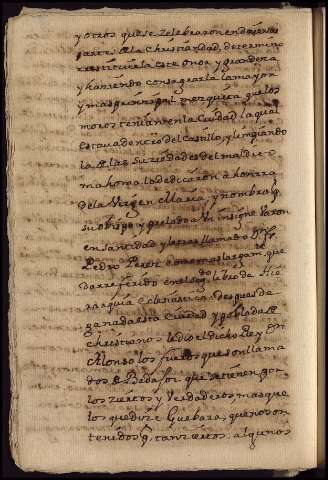 y otros que se zelebraron en dauersas
partes de la christiandad, determino
restituirla este onor y grandeza
y haviendo consagrar la mayor
y mas prinçipal mezquita que los
moros tenian en la Ciudad la qual
estava dentro del castillo, y limpiando
la de las suziedades del maldito
mahoma la dedicaron a honrra
de la Virgen Maria, y nombro
su obispo y prelado a un insigne varon
en santidad y letras llamado D. fr.
Pedro Perez como mas largam.te que
da rreferido en el seg.do libro de Hie
rarquia eclesiastica. Despues de
ganada esta Ciudad y poblada de
christianos le dio el dicho Rey Don
Alonso los fueros que son llama
dos de Badajoz que se tienen por
los ziertos y verdaderos, mas que
los que dize Guebara, que no son
tenidos por tan ziertos. algunos